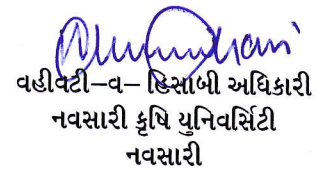 વહીવટી–વ– હિસાબી અધિકારી
નવસારી કૃષિ યુનિવર્સિટી
નવસારી